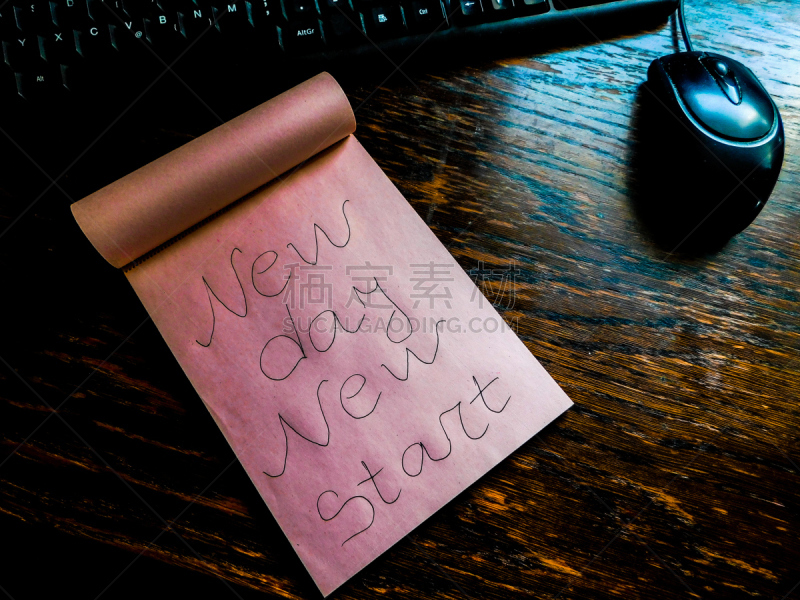 Y X C V B N M ;
Alt AltGr Ctrl
New
day
New
Start
稿定素材
SUCAI.GAODING.COM